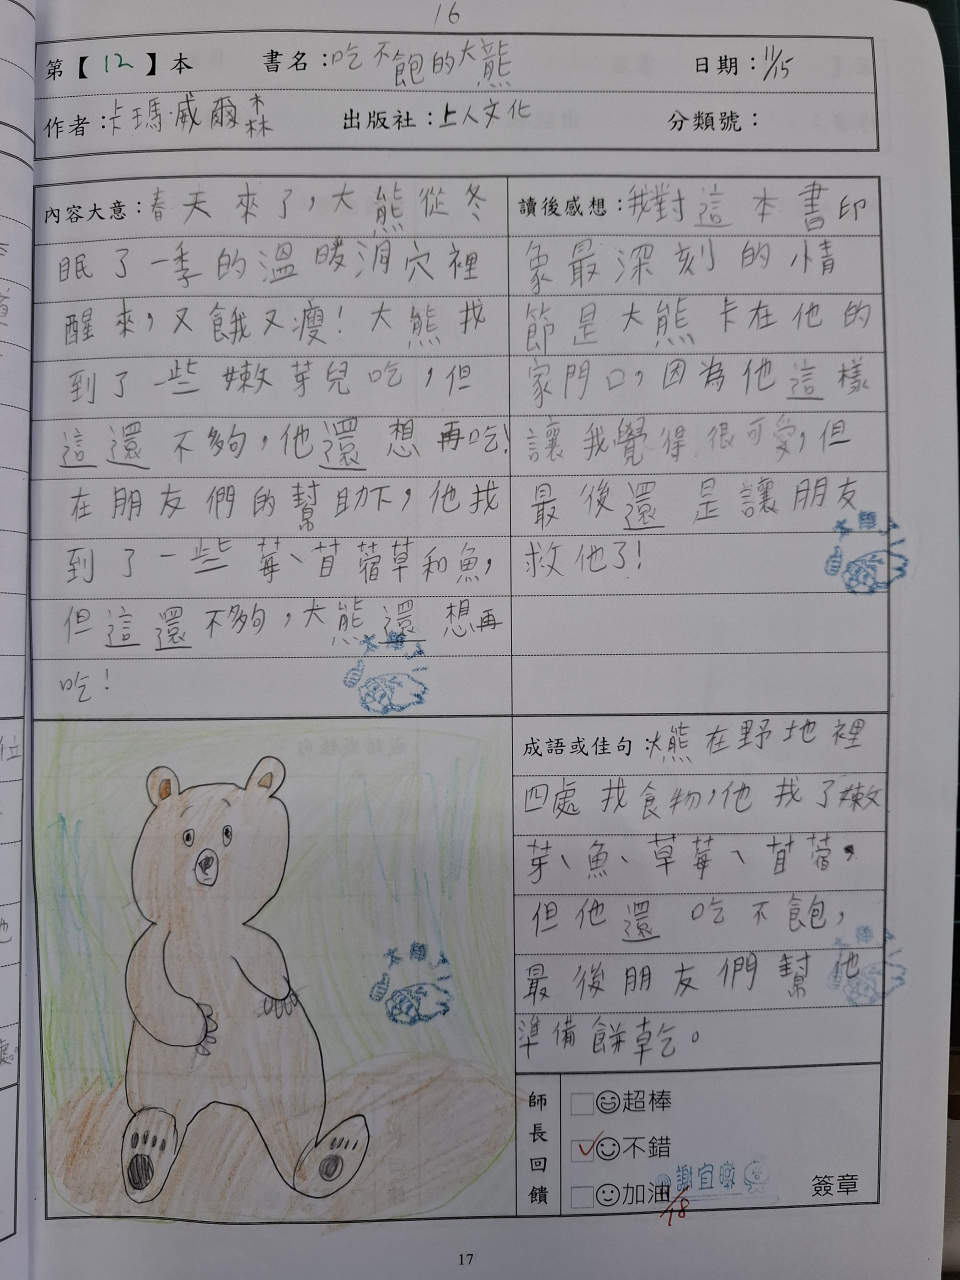 16
第【12】本 書名：吃不飽的大熊 日期：11/15
作者：卡瑪．威爾森 出版社：上人文化 分類號：
內容大意：春天來了，大熊從冬
眠了一季的溫暖洞穴裡
醒來，又餓又瘦！大熊找
到了一些嫩芽兒吃，但
這還不夠，他還想再吃！
在朋友們的幫助下，他找
到了一些莓、苜蓿草和魚，
但這還不夠，大熊還想再
吃！
讀後感想：我對這本書印
象最深刻的情
節是大熊卡在他的
家門口，因為他這樣
讓我覺得很可愛，但
最後還是讓朋友
救他了！
成語或佳句：大熊在野地裡
四處找食物，他找了嫩
芽、魚、草莓、苜蓿，
但他還吃不飽，
最後朋友們幫他
準備餅乾。
師長回饋
超棒
✓不錯
加油
謝宜
11/18
簽章
17